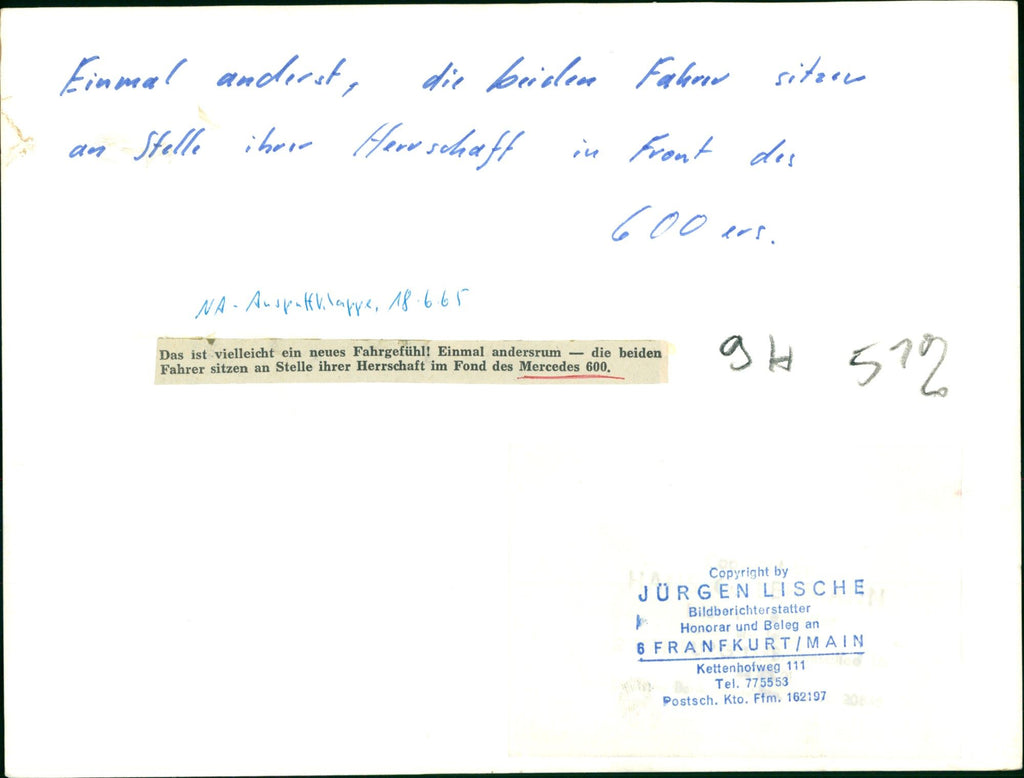 Einmal anderst, die beiden Fahrer sitzen
an Stelle ihrer Herrschaft in Front des
600 ers.
NA - Auspuffklappe, 18.6.65
Das ist vielleicht ein neues Fahrgefühl! Einmal andersrum — die beiden
Fahrer sitzen an Stelle ihrer Herrschaft im Fond des Mercedes 600.
9H 512
Copyright by
JÜRGEN LISCHE
Bildberichterstatter
Honorar und Beleg an
6 FRANFKURT/MAIN
Kettenhofweg 111
Tel. 775553
Postsch. Kto. Ffm. 162197